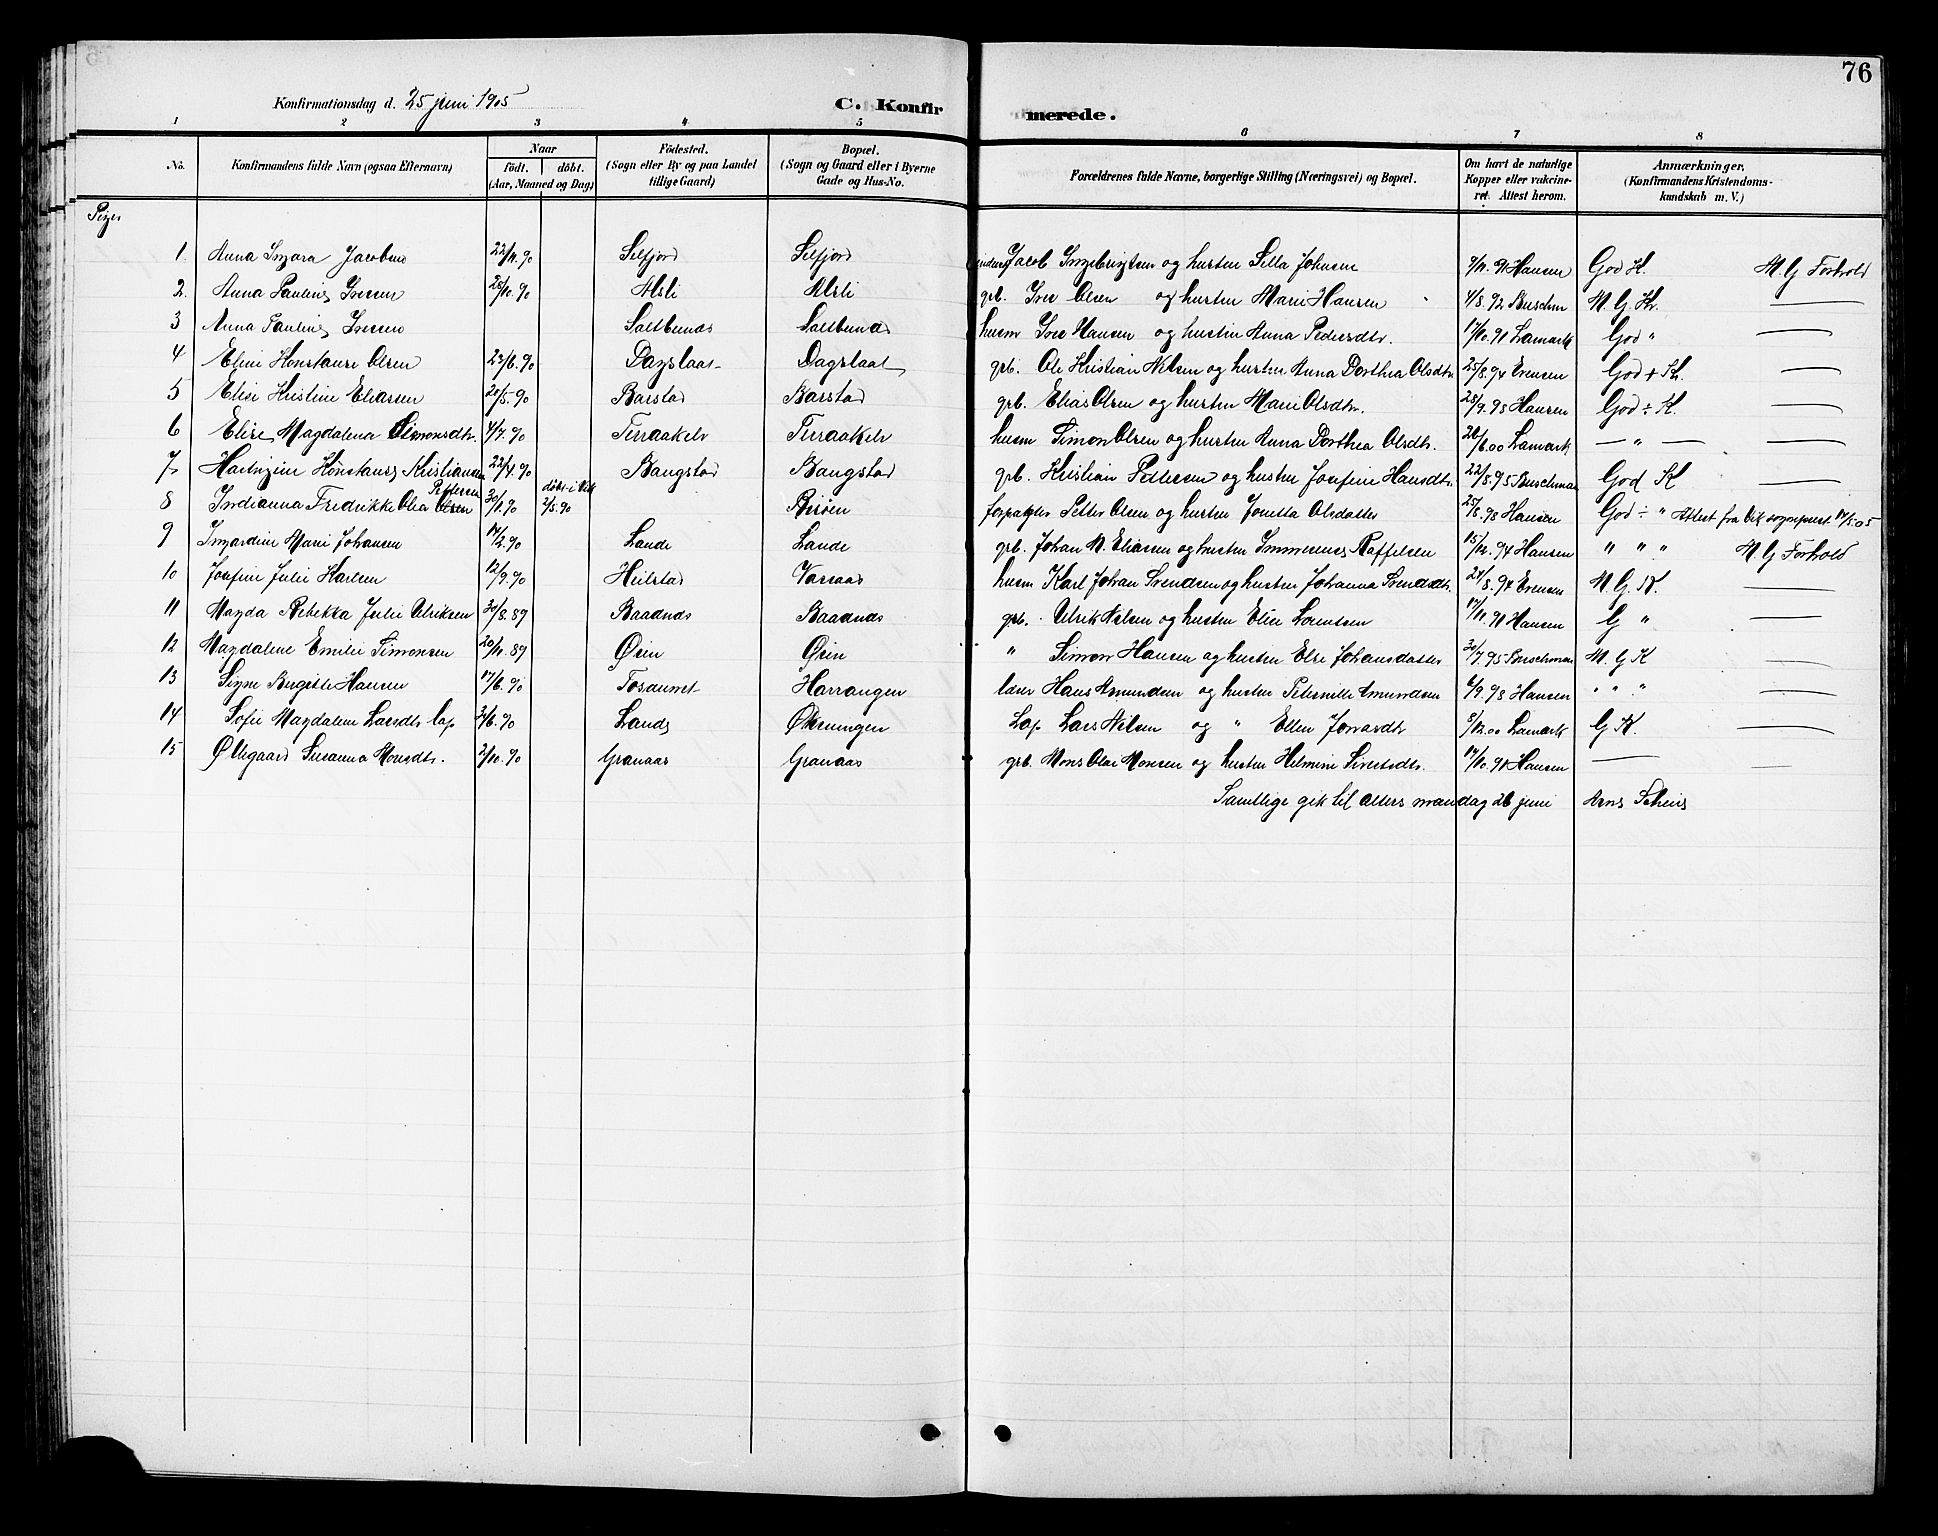 76
Konfirmationsdag d. 25 juni 1905 C. Konfirmerede.
1 2 3 4 5 6 7 8
No. Konfirmandens fulde Navn (ogsaa Efternavn) Naar født. døbt. (Aar, Maaned og Dag) Fødested. (Sogn eller By og paa Landet tillige Gaard) Bopæl. (Sogn og Gaard eller i Byerne Gade og Hus-No. Forældrenes fulde Navne, borgerlige Stilling (Næringsvei) og Bopæl. Om havt de naturlige Kopper eller vakcineret. Attest herom. Anmærkninger, (Konfirmandens Kristendomskundskab m. V.)
Piger
1 Anna Ingara Jacobsen 22/11.90 Silfjord Silfjord Jacob Ingebrigtsen og hustru Silla Johnsen 9/11.91 Hansen God K. M. G Forhold
2. Anna Pauline Iversen 28/10.90 Alsli Alsli grb. Iver Olsen og hustru Marie Hansen 4/8.92 Buschm M. G. Kr. —
3 Anna Pauline Iversen Saltbunds Saltbunds husm Iver Hansen og hustru Anna Pedersdtr. 17/10.91 Lamark God " —
4 Eline Konstanse Olsen 23/6.90 Dagslaat Dagslaat grb. Ole Kristian Nilsen og hustru Anna Dorthea Olsdtr 25/8.94 Evensen God + Kr. —
5 Elise Kristine Eliassen 20/5.90 Barstad Barstad grb. Elias Olsen og hustru Marie Olsdtr. 28/9.98 Hansen God ÷ K. —
6 Elise Magdalena Simonsdtr. 4/7.90 Terraakelv Terraakelv husm Simon Olsen og hustru Anna Dorthea Olsdtr. 20/6.00 Lamark — " — —
7 Hartvigine Konstanse Kristiansen 22/4.90 Bangstad Bangstad grb. Kristian Pedersen og hustru Josefine Hansdtr. 22/8.95 Buschman God K —
8 Indianna Fredrikke Olea Olsen Pettersen 30/1.90 døbt i Vik 2/5.90 Risøen forpagter Petter Olsen og hustru Jonetta Olsdatter 25/8.98 Hansen God ÷ " Attest fra Vik sogneprest 14/5.05
9 Ingardine Marie Johansen 14/2.90 Lande Lande grb. Johan M. Eliasen og hustru Immerense Raffelsen 15/12.94 Hansen " " " M G Forhold
10 Josefine Julie Karlsen 12/9.90 Heilstad Vassaas husm Karl Johan Svendsen og hustru Johanna Svendsdtr. 24/8.94 Evensen M. G. K. —
11 Magda Rebekka Julie Ulriksen 30/8.89 Baadnds Baadnds grb. Ulrik Nilsen og hustru Elise Lorentsen 17/11.91 Hansen G " —
12 Magdalene Emilie Simonsen 20/11.89 Øsen Øsen " Simon Hansen og hustru Else Johansdatter 30/7.95 Buschman M. G K —
13 Signe Bergitte Hansen 17/6.90 Tosdunet Harrangen lærer Hans Amundsen og hustru Peternille Amundsen 6/9.98 Hansen " " " —
14 Sofie Magdalena Larsdtr. lap 3/6.90 Lande Øksningen Lap Lars Nilsen og " Ellen Jonasdtr 5/12.00 Lamark G K. —
15 Øllegaard Susanna Monsdtr. 2/10.90 Granaas Granaas grb. Mons Olai Monsen og hustru Helmine Sivertsdtr. 17/10.91 Hansen — —
Samtlige gik til alters mandag 26 juni Arne